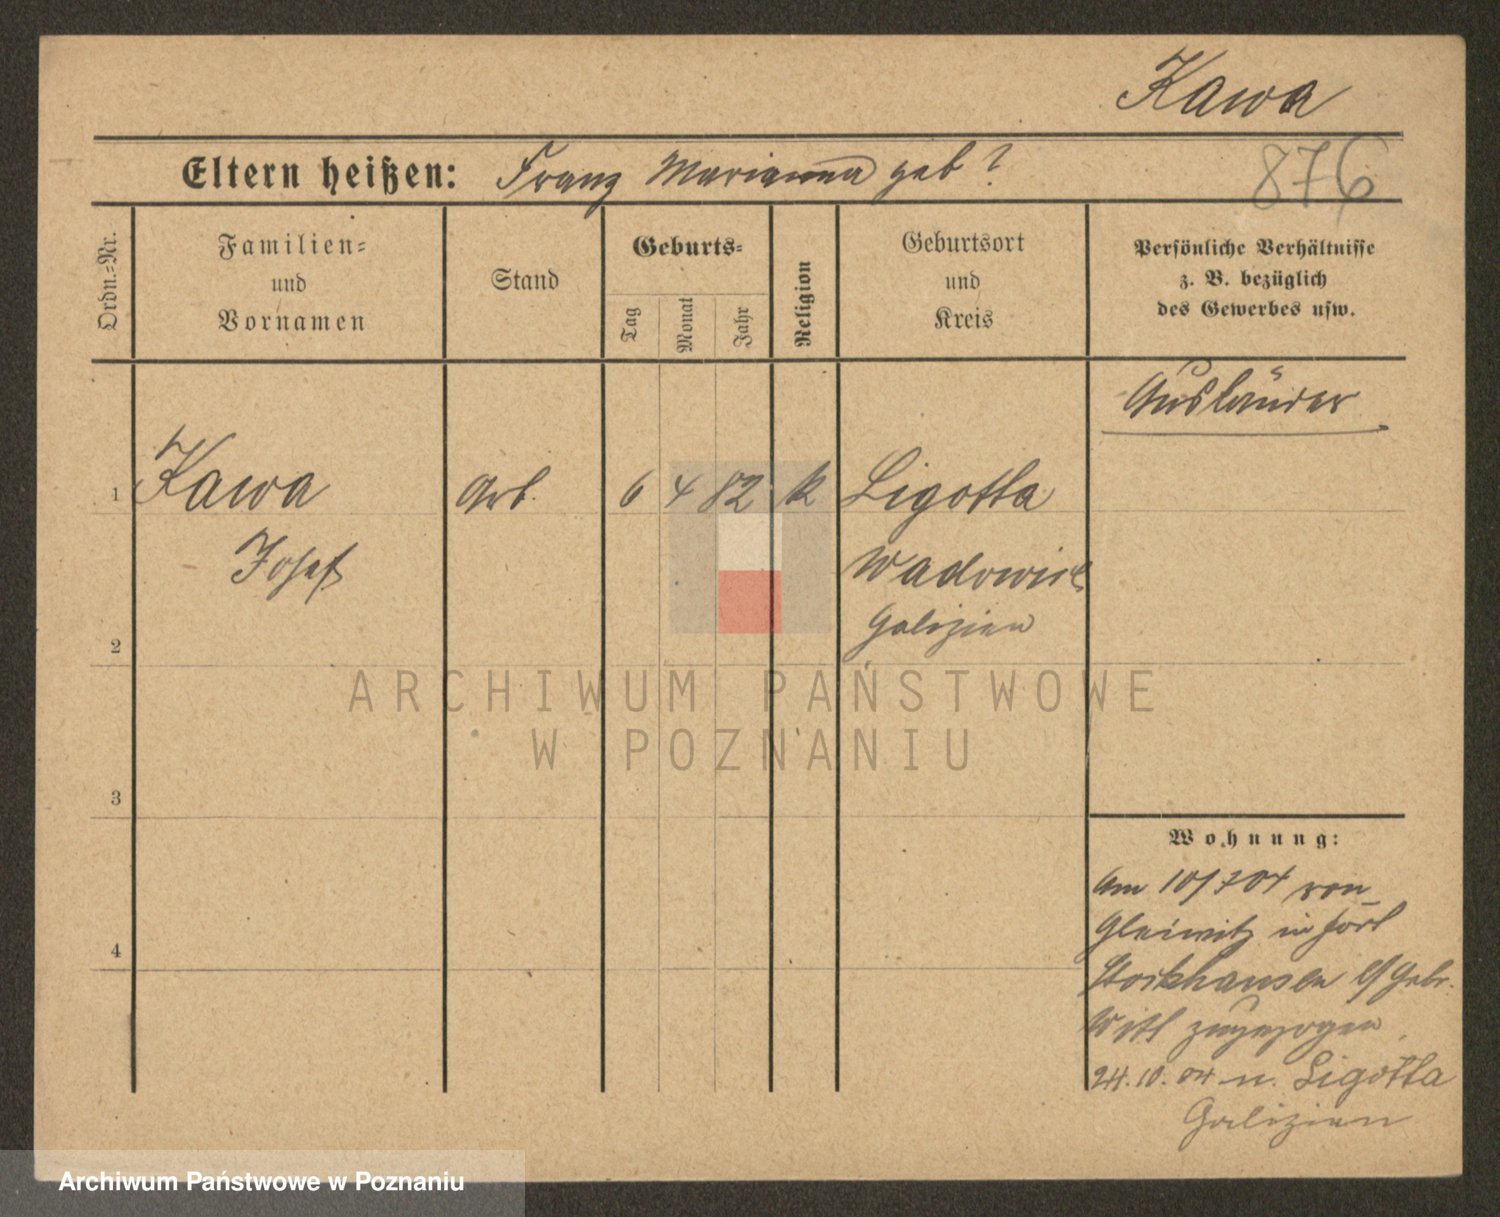 Kawa
Eltern heißen: Franz Marianna geb ?
876
Ordn.=Nr.
Familien=
und
Vornamen
Stand
Geburts=
Tag
Monat
Jahr
Religion
Geburtsort
und
Kreis
Persönliche Verhältnisse
z. B. bezüglich
des Gewerbes usw.
Ausländer
1 Kawa Arb. 6 4 82 k Ligotta
Josef
Wadowice
Galizien
2
3
4
Wohnung:
Am 10/7 04 von
Gleiwitz in
Stockhausen Gebr.
Witt zugezogen
24.10.04 n. Ligotta
Galizien
ARCHIWUM PAŃSTWOWE
W POZNANIU
Archiwum Państwowe w Poznaniu